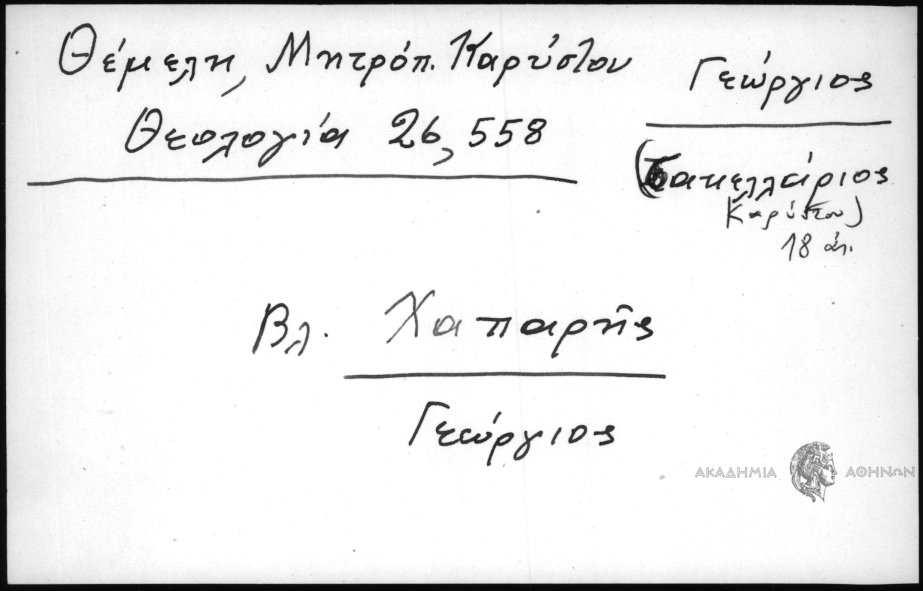 Θέμελη, Μητρόπ. Καρύστου
Θεολογία 26, 558
Γεώργιος
(Σακελλάριος
Καρύστου)
18 αἰ.
Βλ. Χαπαρῆς
Γεώργιος
ΑΚΑΔΗΜΙΑ ΑΘΗΝΩΝ